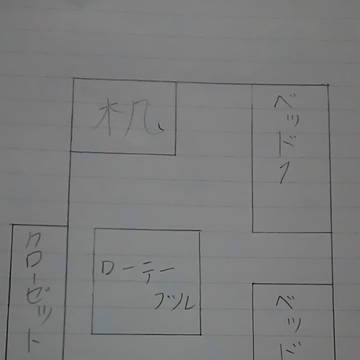 机
ベッド1
ローテー
ブル
クローゼット
ベッド